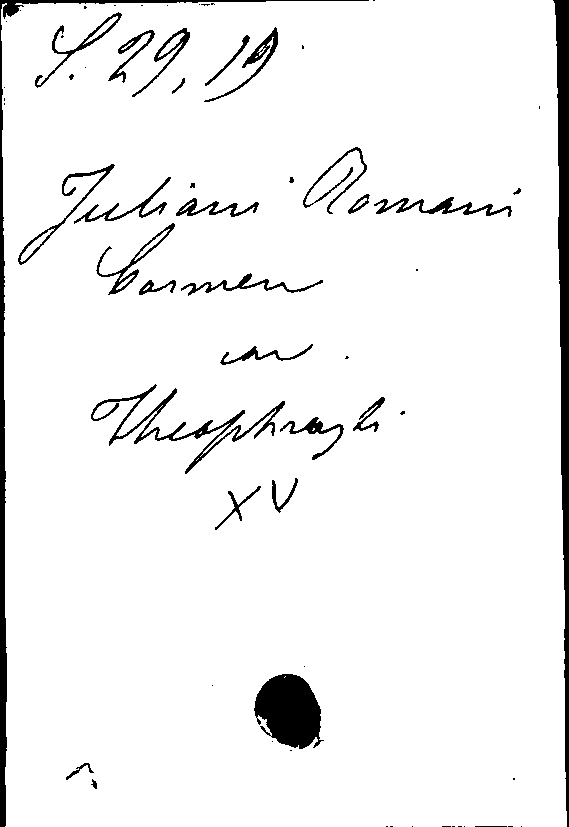 S. 29, 19
Juliani Romani
Carmen
in
Theophrasti
XV